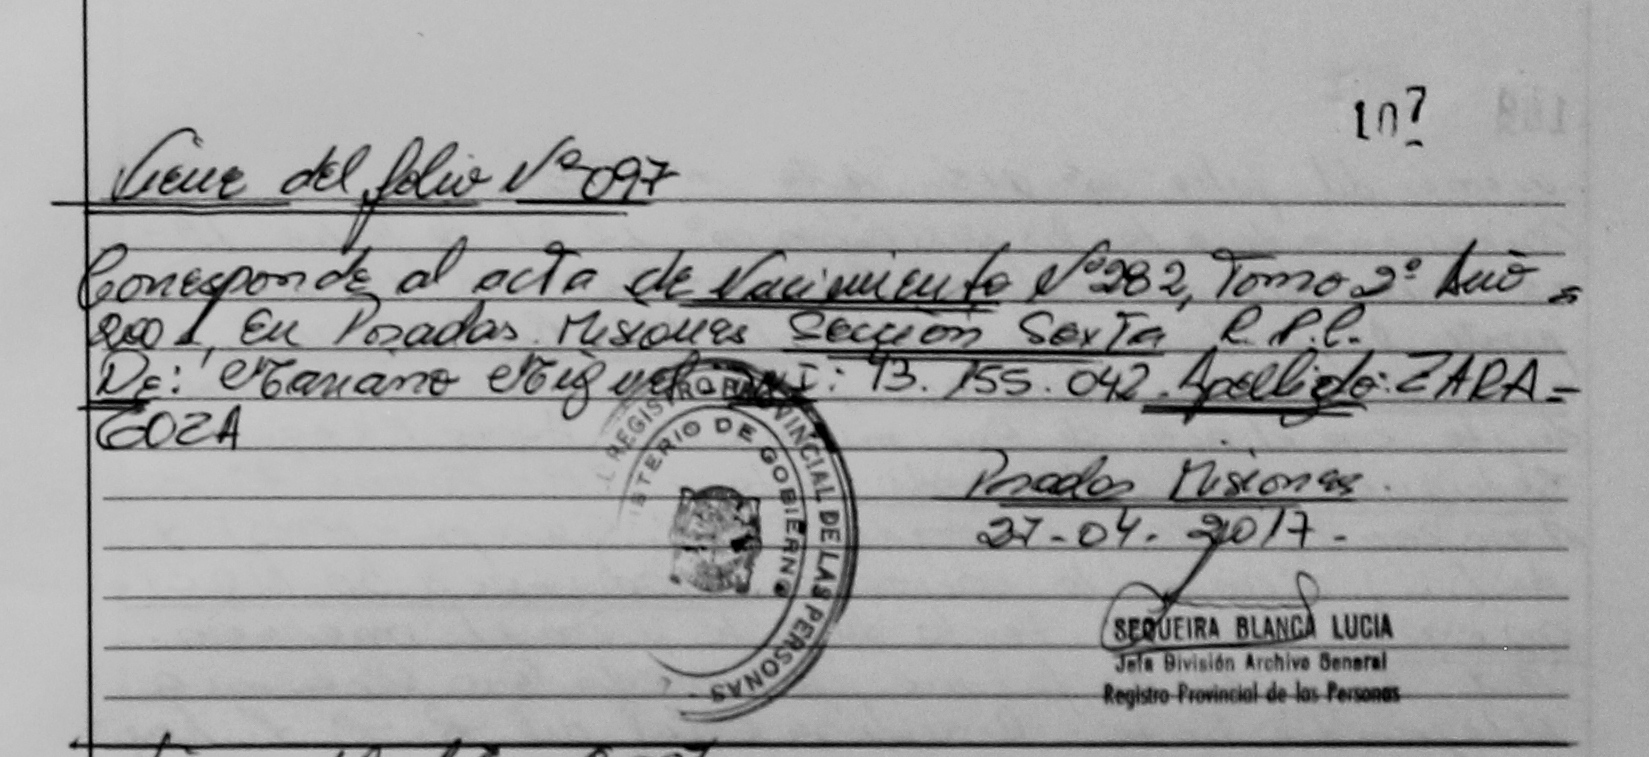 107
Viene del folio Nº 097
Corresponde al acta de Nacimiento Nº 282, Tomo 2º Año
2001, En Posadas Misiones Sección Sexta R.P.P.
De: Mariano Miguel DNI: 43.155.042 Apellido: ZARA-
GOZA
REGISTRO PROVINCIAL DE LAS PERSONAS
MINISTERIO DE GOBIERNO
Posadas Misiones.
27-04-2017-
SEQUEIRA BLANCA LUCIA
Jefa División Archivo General
Registro Provincial de las Personas